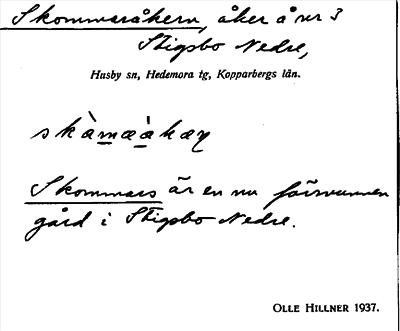 Skommaråkern, åker å nr 3
Stigsbo Nedre,
Husby sn, Hedemora tg, Kopparbergs län.
skàmæàkæṇ
Skommars är en nu försvunnen
gård i Stigsbo Nedre.
OLLE HILLNER 1937.